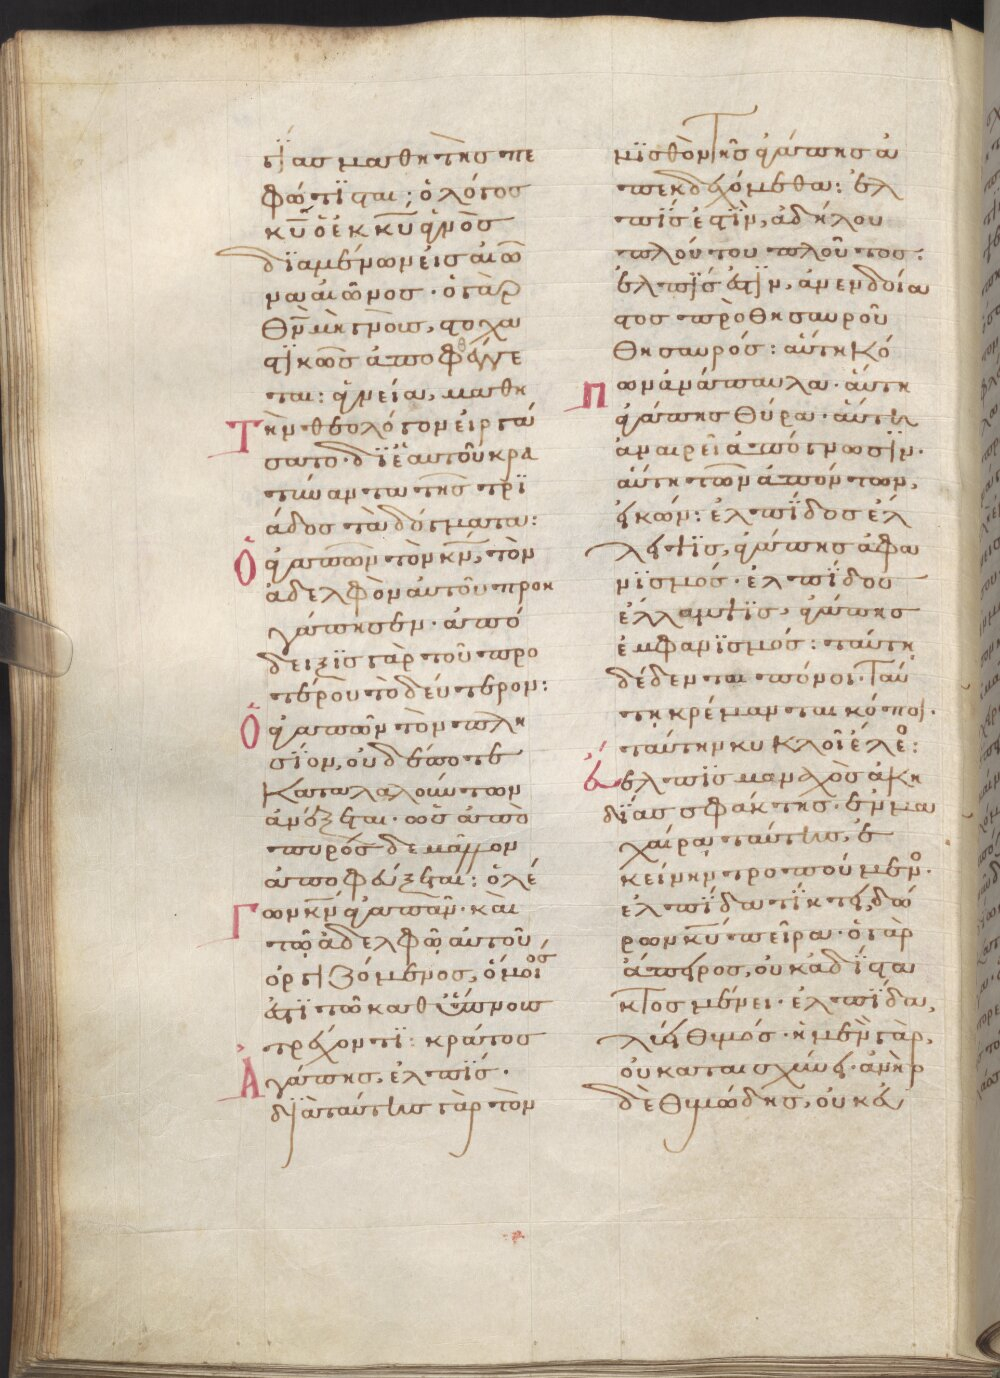 τίας μαθητὴς πε
φώτισται; ὁ λόγος
κῡ ὁ ἐκ κῡ ἁγνὸς
διαμένων εἰς αἰῶ
να αἰῶνος· ὁ γὰρ
θν̄ μὴ γνοὺς, στοχα
στικῶς ἀποφθέγγε
ται: ἁγνεία, μαθη
Τὴν θεολόγον εἰργά
σατο· δι' ἑαυτοῦ κρα
τύναντα τῆς τρι
άδος τὰ δόγματα:
Ὁ ἀγαπῶν τὸν κν̄, τὸν
ἀδελφὸν αὐτοῦ προη
γάπησεν· ἀπό
δειξις γὰρ τοῦ προ
τέρου τὸ δεύτερον:
Ὁ ἀγαπῶν τὸν πλη
σίον, οὐδέποτε
καταλαλούντων
ἀνέξεται· ὡς ἀπὸ
πυρὸς δὲ μᾶλλον
ἀποφεύξεται: ὁ λέ
Γων κν̄ ἀγαπᾶν· καὶ
τῷ ἀδελφῷ αὐτοῦ
ὀργιζόμενος, ὅμοιός
ἐστι τῷ καθ' ὕπνους
τρέχοντι: κράτος
Ἀγάπης, ἐλπίς·
διὰ ταύτης γὰρ τὸν
μισθὸν τῆς ἀγάπης ἀ
πεκδεχόμεθα: ἐλ
πίς ἐστιν, ἀδήλου
πλούτου πλοῦτος:
ἐλπίς ἐστιν, ἀνενδοία
στος πρὸ θησαυροῦ
θησαυρός: αὕτη κό
Πων ἀνάπαυλα· αὕτη
ἀγάπης θύρα· αὕτη
ἀναιρεῖ ἀπόγνωσιν·
αὕτη τῶν ἀπόντων,
εἰκών: ἐλπίδος ἔλ
λειψις, ἀγάπης ἀφα
νισμός· ἐλπίδος
ἔλλαμψις, ἀγάπης
ἐμφανισμός: ταύτῃ
δέδενται πόνοι· ταύ
τῃ κρέμανται κόποι·
ταύτην κυκλοῖ ἔλεος:
Εὔελπις μοναχὸς ἀκη
δίας σφάκτης· ἐν μα
χαίρᾳ ταύτης, ἐ
κείνην τροπούμενος·
ἐλπίδα τίκτει, δώ
ρων κῡ πεῖρα· ὁ γὰρ
ἄπειρος, οὐκ ἀδίστα
κτος μένει· ἐλπίδα,
λύει θυμός· ἡ μὲν γὰρ,
οὐ καταισχύνει· ἀνὴρ
δὲ θυμώδης, οὐκ εὐ